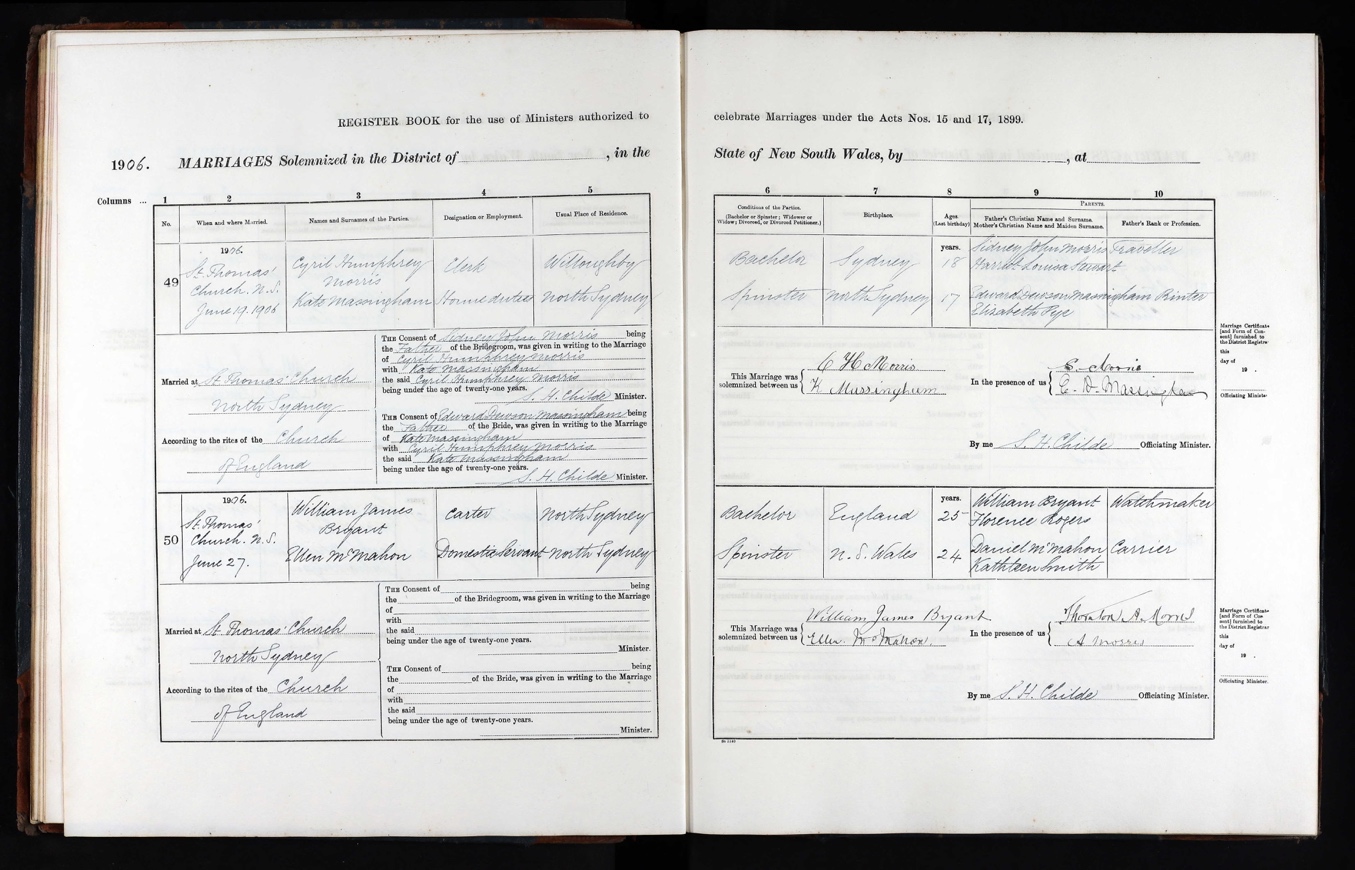 REGISTER BOOK for the use of Ministers authorized to
1906. MARRIAGES Solemnized in the District of , in the
Columns ... 1 2 3 4 5
No. When and where Married. Names and Surnames of the Parties. Designation or Employment. Usual Place of Residence.
49
1906.
St. Thomas'
Church. N.S.
June 19. 1906
Cyril Humphrey
Morris
Kate Massingham
Clerk
Home duties
Willoughby
North Sydney
Married at St. Thomas' Church
North Sydney
According to the rites of the Church
of England
THE Consent of Sidney John Morris being
the Father of the Bridegroom, was given in writing to the Marriage
of Cyril Humphrey Morris
with Kate Massingham
the said Cyril Humphrey Morris
being under the age of twenty-one years.
S. H. Childe Minister.
THE Consent of Edward Massingham being
the Father of the Bride, was given in writing to the Marriage
of Kate Massingham
with Cyril Humphrey Morris
the said Kate Massingham
being under the age of twenty-one years.
S. H. Childe Minister.
50
1906.
St. Thomas'
Church. N.S.
June 27.
William James
Bryant
Ellen McMahon
Carter
Domestic Servant
North Sydney
North Sydney
Married at St. Thomas' Church
North Sydney
According to the rites of the Church
of England
THE Consent of being
the of the Bridegroom, was given in writing to the Marriage
of
with
the said
being under the age of twenty-one years.
Minister.
THE Consent of being
the of the Bride, was given in writing to the Marriage
of
with
the said
being under the age of twenty-one years.
Minister.
celebrate Marriages under the Acts Nos. 15 and 17, 1899.
State of New South Wales, by , at
6 7 8 9 10
Conditions of the Parties.
(Bachelor or Spinster; Widower or
Widow; Divorced, or Divorced Petitioner.)
Birthplace.
Ages.
(Last birthday)
PARENTS.
Father's Christian Name and Surname.
Mother's Christian Name and Maiden Surname.
Father's Rank or Profession.
Bachelor
Spinster
Sydney
North Sydney
years.
18
17
Sidney John Morris
Harriet Louisa Stewart
Edward Massingham
Elizabeth Pye
Traveller
Printer
This Marriage was
solemnized between us
C H Morris
K Massingham
In the presence of us
E. Morris
E. D. Massingham
By me S. H. Childe Officiating Minister.
Marriage Certificate
[and Form of Con-
sent] furnished to
the District Registrar
this
day of
19 .
Officiating Minister.
Bachelor
Spinster
England
N. S. Wales
years.
25
24
William Bryant
Florence Rogers
Daniel McMahon
Kathleen Smith
Watchmaker
Carrier
This Marriage was
solemnized between us
William James Bryant
Ellen McMahon.
In the presence of us
A Morris
By me S. H. Childe Officiating Minister.
Marriage Certificate
[and Form of Con-
sent] furnished to
the District Registrar
this
day of
19 .
Officiating Minister.